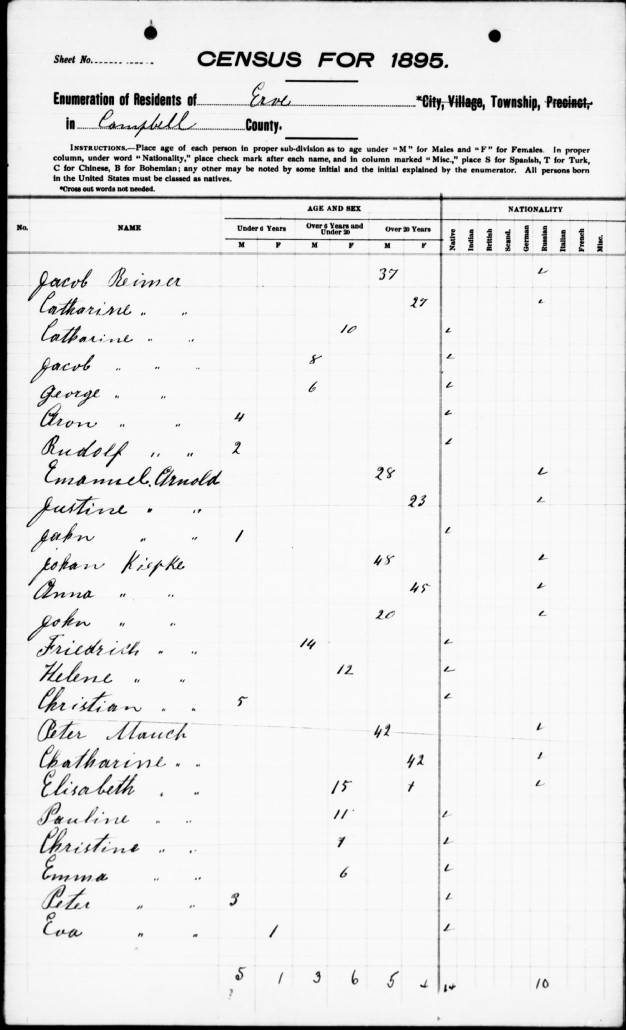 CENSUS FOR 1895.
Sheet No.
Enumeration of Residents of Erve *City, Village, Township, Precinct,
in Campbell County.
INSTRUCTIONS.—Place age of each person in proper sub-division as to age under "M" for Males and "F" for Females. In proper
column, under word "Nationality," place check mark after each name, and in column marked "Misc.," place S for Spanish, T for Turk,
C for Chinese, B for Bohemian; any other may be noted by some initial and the initial explained by the enumerator. All persons born
in the United States must be classed as natives.
*Cross out words not needed.
AGE AND SEX NATIONALITY
No. NAME Under 6 Years Over 6 Years and Under 20 Over 20 Years Native Indian British Scand. German Russian Italian French Misc.
M F M F M F
Jacob Reimer 37 ✓
Catharine " " 27 ✓
Catharine " " 10 ✓
Jacob " " 8 ✓
George " " 6 ✓
Aron " " 4 ✓
Rudolf " " 2 ✓
Emanuel Arnold 28 ✓
Justine " " 23 ✓
John " " 1 ✓
Johan Kiepke 48 ✓
Anna " " 45 ✓
John " " 20 ✓
Friedrich " " 14 ✓
Helene " " 12 ✓
Christian " " 5 ✓
Peter Mauch 42 ✓
Chatharine " " 42 ✓
Elisabeth " " 15 ✓
Pauline " " 11 ✓
Christine " " ✓
Emma " " 6 ✓
Peter " " 3 ✓
Eva " " 1 ✓
5 1 3 6 5 14 10